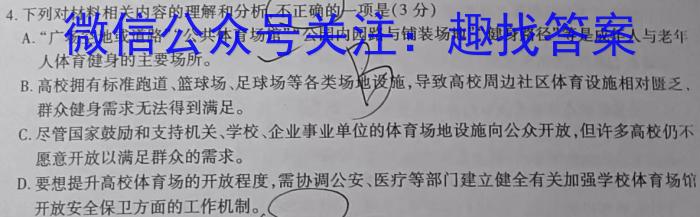 4.下列对材料相关内容的理解和分析,不正确的一项是(3分)
微信公众号关注:趣找答案
A.“广场空地或道路”“公共体育场馆”“公园内园路与铺装场地”“健身路径”等是成年人与老年
人体育健身的主要场所。
B.高校拥有标准跑道、篮球场、足球场等各类场地设施,导致高校周边社区体育设施相对匮乏,
群众健身需求无法得到满足。
C.尽管国家鼓励和支持机关、学校、企业事业单位的体育场地设施向公众开放,但许多高校仍不
愿意开放以满足群众的需求。
D.要想提升高校体育场的开放程度,需协调公安、医疗等部门建立健全有关加强学校体育场馆
开放安全保卫方面的工作机制。